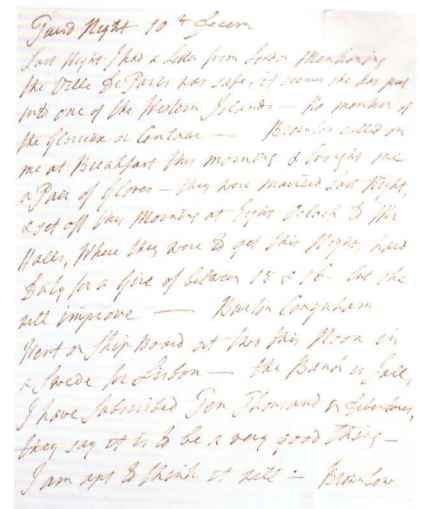 Night 10th Decem
Last Night I had a Letter from London Mentioning
the Ville De Paris was safe, it seems she has put
into one of the Western Islands - No mention of
the Glorieux or Centaur - Brownlow called on
me at Breakfast this morning & brought me
a Pair of Gloves - they were married Last Night,
& set off this Morning at Eight Oclock to Mr
Hales, Where they were to get this Night,
for a Girl of between 15 & 16 - but she
will improve - Burton Conyngham
Went on Ship Board at two this Noon in
a Swede for Lisbon - the Bank is
I have Subscribed Ten Thousand in
they say it is to be a very good thing -
I am apt to think it will - Brownlow